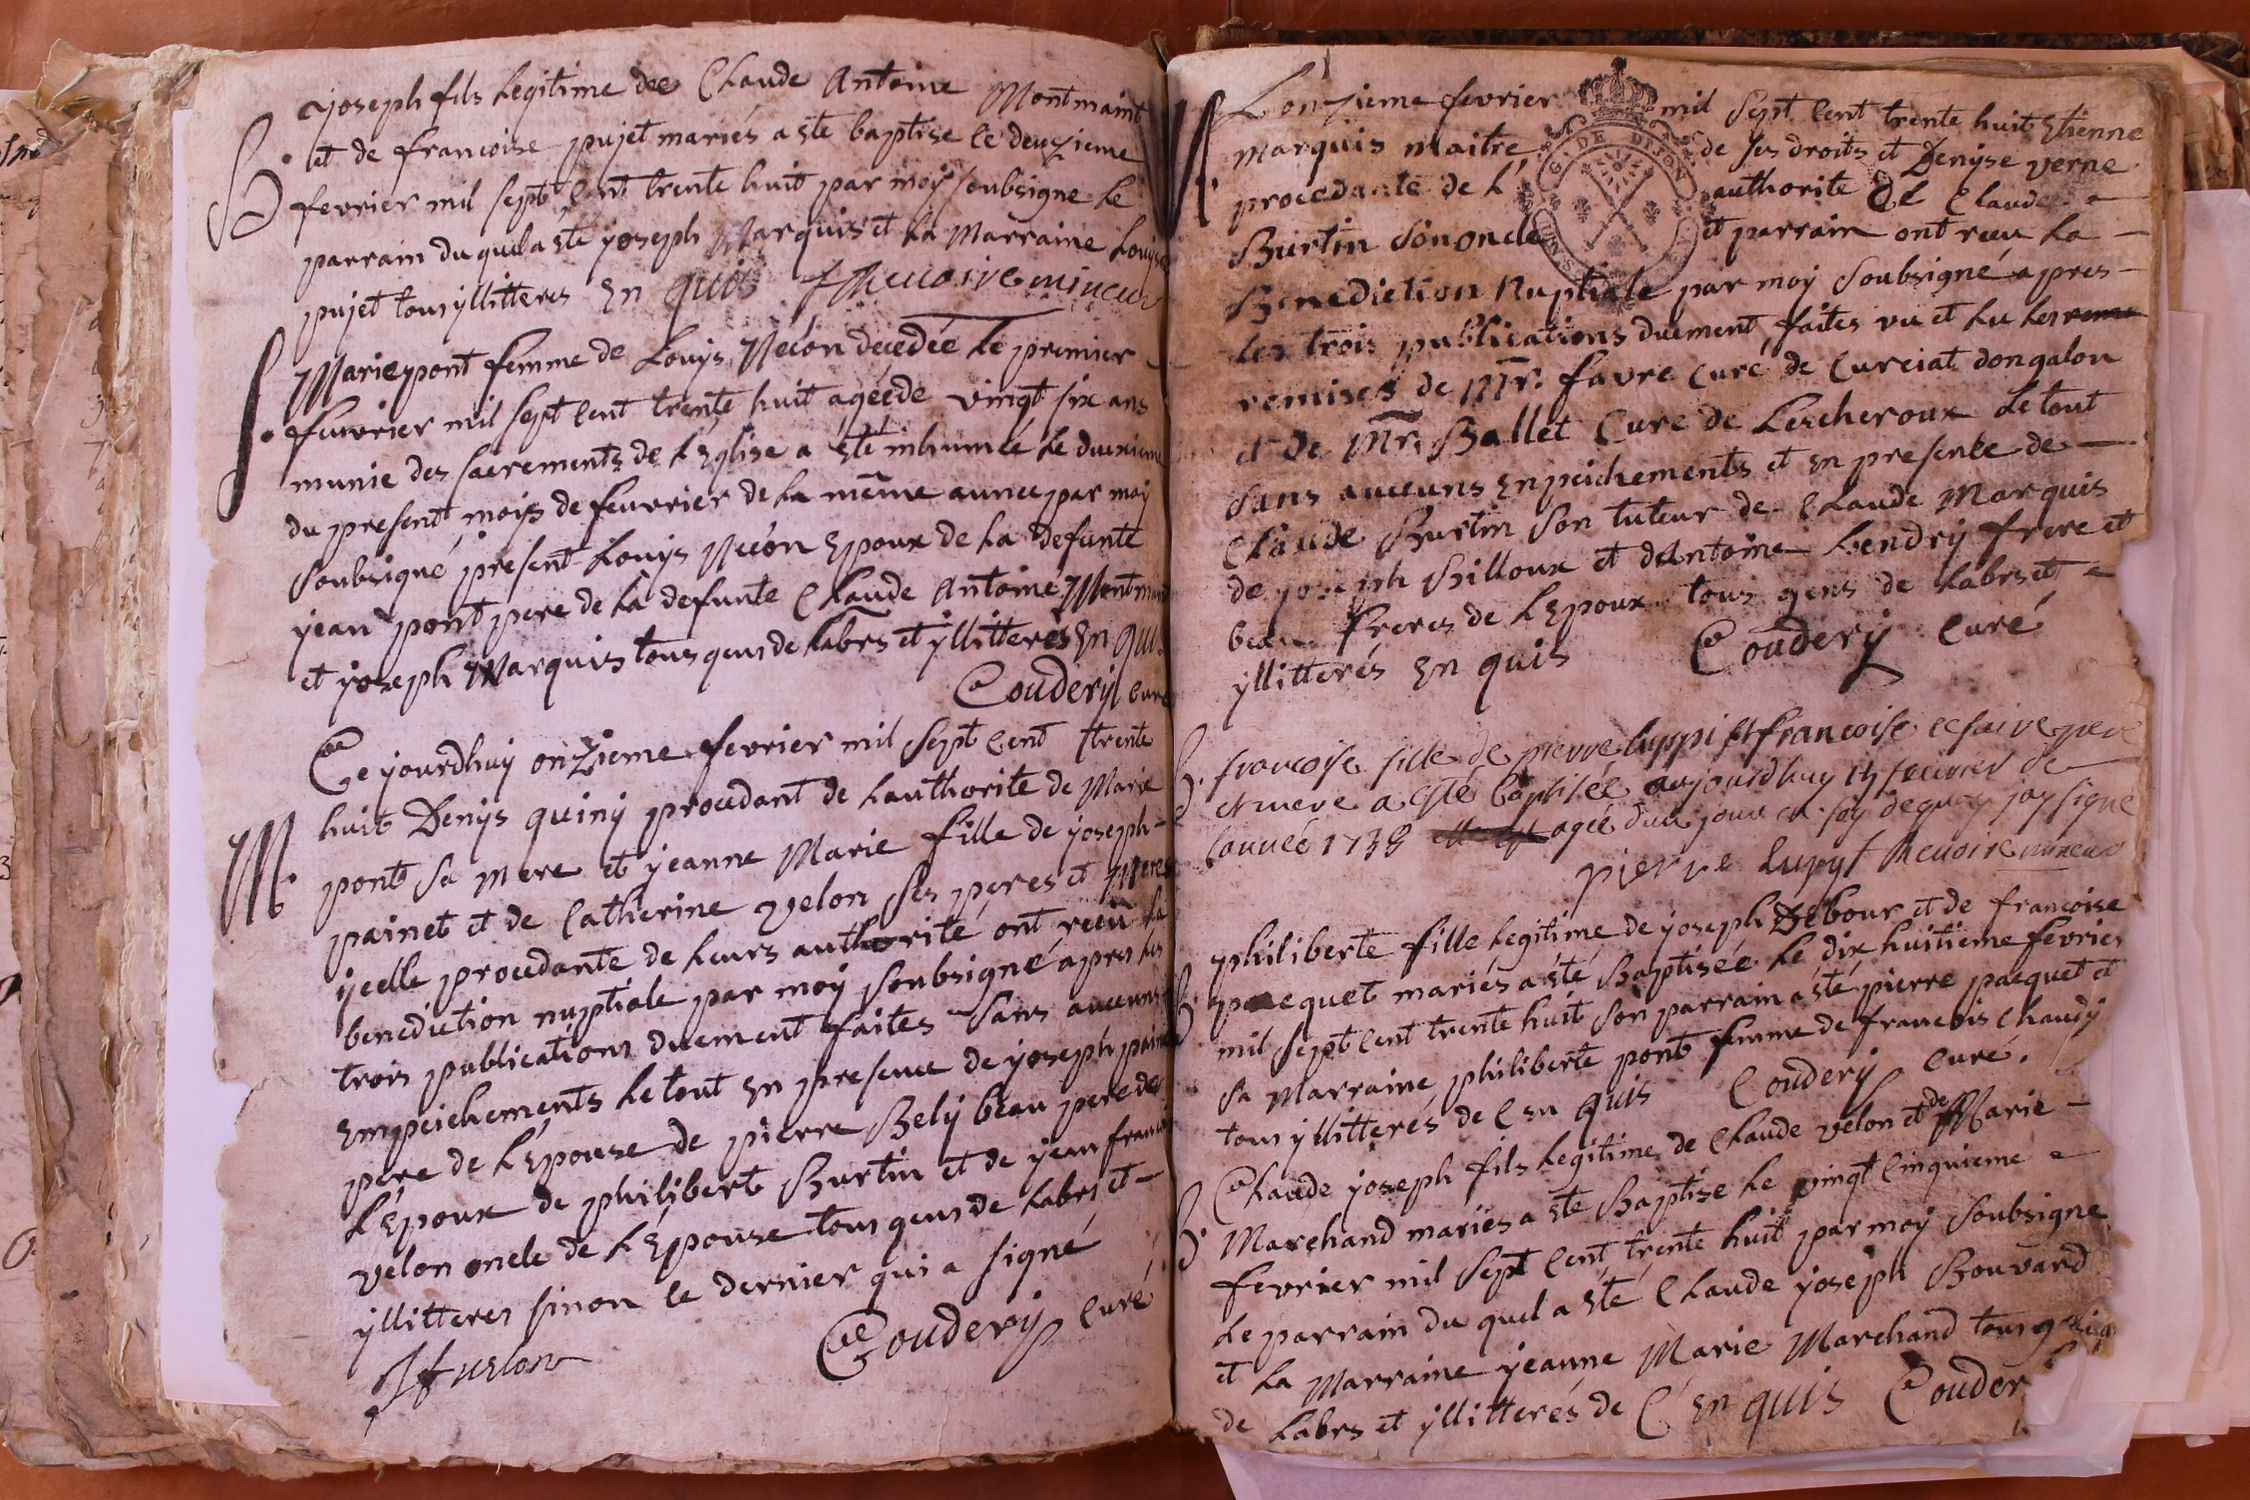 Joseph fils Legitime de Claude Antoine Montmain
B. et de francoise pujet mariés a ste baptise le deuxieme
fevrier mil sept cent trente huit par moy soubsigne Le
parrain du quel a sté yoseph Marquis et La Marraine Louyse
pujet tous yllitteres En quis
S. Marie pont femme de Louys Nécon decedée Le premier
feuvrier mil sept cent trente huit ageéde vingt six ans
munie des sacrements de L'Eglise a êté inhumée Le duexieme
du present mois de feuvrier de La même annee par moy
soubsigné present Louys Nécon Epoux de La defunte
yean pont pere de La defunte Claude Antoine Montmain
et yoseph Marquis tous gens de Labrs et yllitterés En quis
Coudery Curé
Ce yourdhuy onzieme fevrier mil sept Cent trente
M. huit Denys quiny procedant de Lauthorite de Marie
pont sa mere et yeanne Marie fille de yoseph
painet et de Catherine velon ses peres et meres
ycelle procedante de Leurs authorité ont recu La
benediction nuptiale par moy soubsigné apres Les
trois publications duement faites sans aucuns
Empeichements Le tout En presence de yoseph painet
pere de L'Epouse de pierre Bely beau pere de
L'Epoux de philibert Burtin et de yean francois
velon oncle de L'Epouse tous gens de Labrs et
yllitteres sinon le dernier qui a signé
Jf velon Coudery Curé
M. L'onzieme fevrier mil sept Cent trente huit Etienne
Marquis maitre de ses droits et Denyse verne
procedante de L' authorite de Claude
Burtin son oncle et parrain ont recu La
Benediction Nuptiale par moy soubsigné apres
Les trois publications duement faites vu et Lu Les
remises de Mr. favre Curé de Curciat dongalon
et de Mr. Ballet Cure de Lescheroux Le tout
sans aucuns Enpeichements et En presence de
Claude Burtin son tuteur de Claude Marquis
de yoseph Billoux et d'Antoine Lendry frere et
beau freres de L'Epoux tous gens de Labrs et
yllitterés En quis Coudery Curé
B. francoise fille de pierre luppi et francoise pere
et mere a esté baptisée aujourdhuy feuvrier de
lannee 1738 agée d'un jour en foy dequoy jay signé
pierre Lupy
B. philiberte fille Legitime de yoseph Debour et de francoise
pacquet mariés a sté Baptisée Le dix huitieme fevrier
mil sept cent trente huit son parrain a sté pierre pacquet et
sa Marraine philiberte pont femme de francois Chaudy
tous yllitterés de Cen quis Coudery Curé.
B. Claude yoseph fils Legitime de Claude velon et de Marie
Marchand mariés a ste Baptise Le vingt Cinquieme
fevrier mil sept Cent trente huit par moy soubsigne
Le parrain du quel a sté Claude yoseph Bouvard
et La Marraine yeanne Marie Marchand tous gens
de Labrs et yllitterés de C'En quis Couder